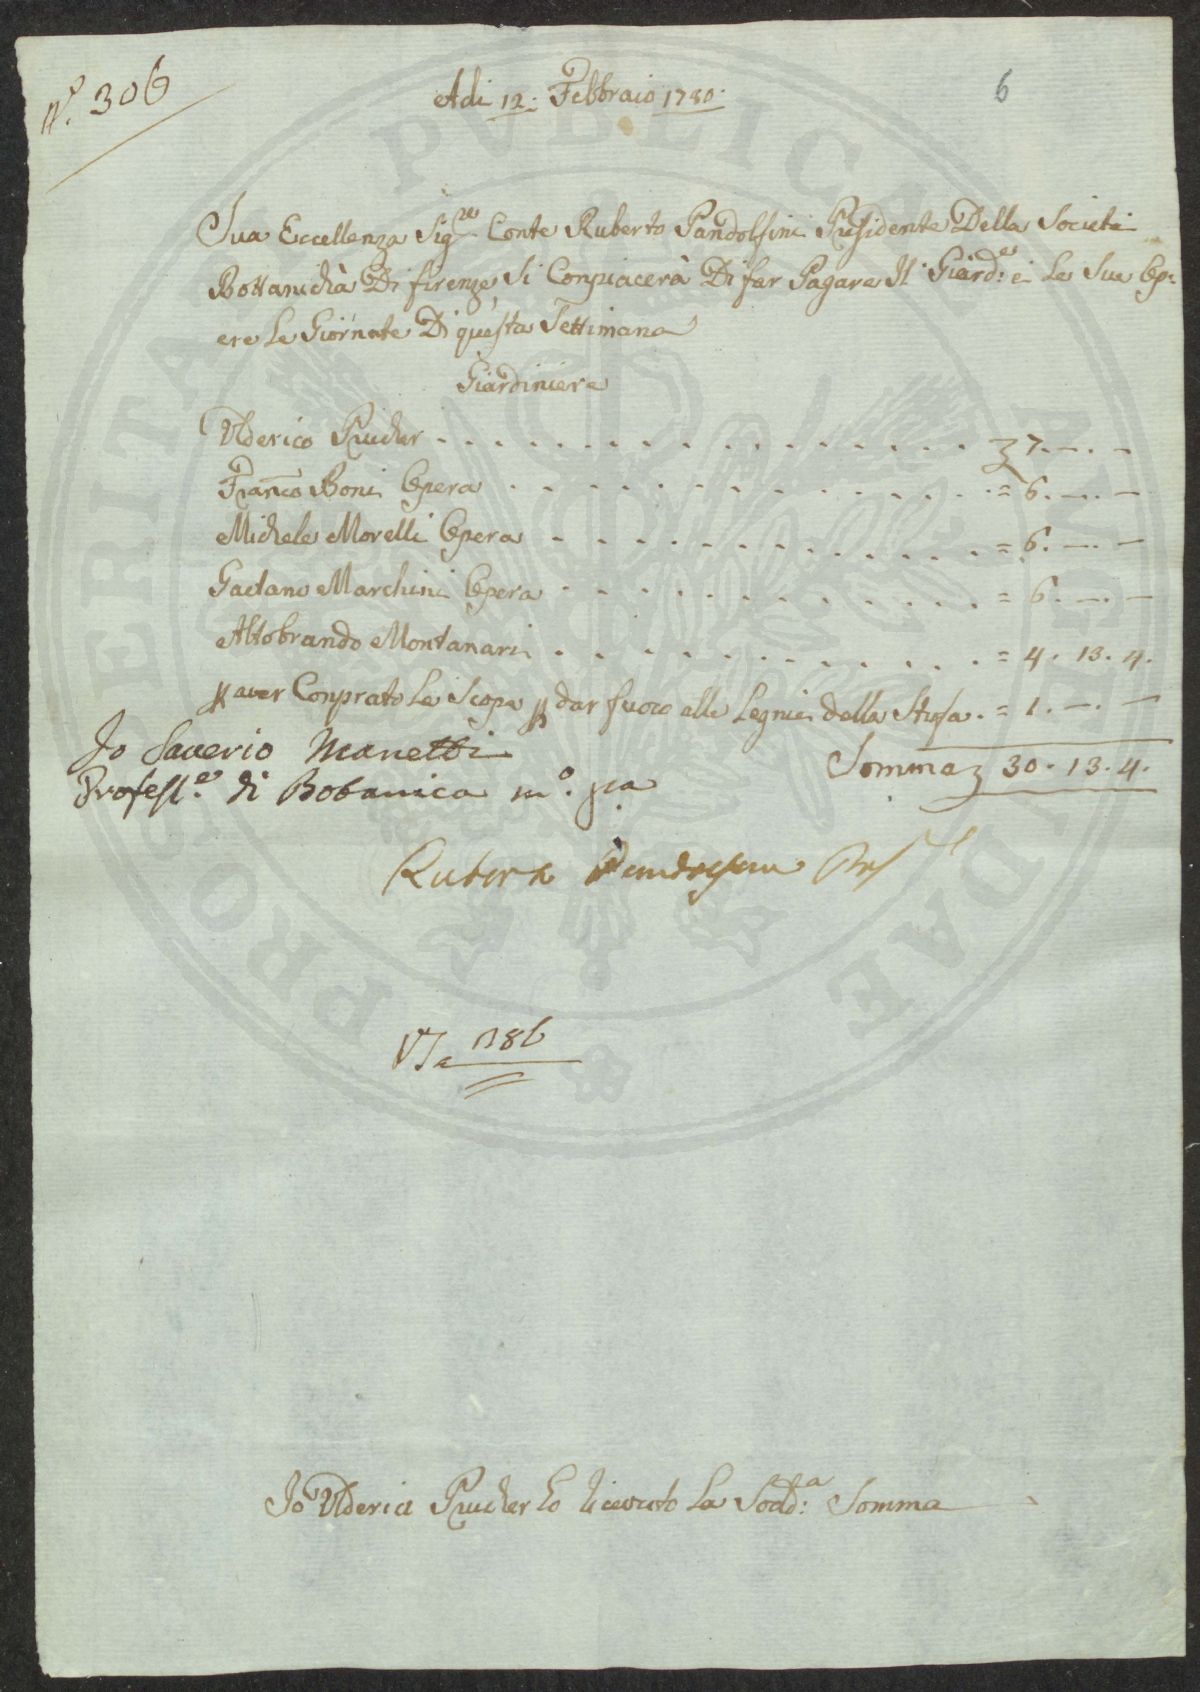 N.° 306
Adi 12: Febbraio 1780.
6
Sua Eccellenza Sig.re Conte Ruberto Pandolfini Presidente Della Società
Bottanicha Di firenze Si Conpiacerà Di far Pagare Il Giard:e e Le Sue Op:
ere Le Giornate Di questa Settimana
Giardiniere
Ulderico Prucher . . . . . . . . . . . . . . . . . 7. — . —
Franco Boni Opera . . . . . . . . . . . . . . . = 6. — . —
Michele Morelli Opera . . . . . . . . . . . . . . = 6. — . —
Gaetano Marchini Opera . . . . . . . . . . . . . = 6. — . —
Altobrando Montanari . . . . . . . . . . . . . = 4. 13. 4.
p aver Conprato La Scopa p dar fuoco alle Legnie della Stufa . = 1. — . —
Somma 30. 13. 4.
Io Saverio Manetti
Profess.e di Botanica m.o pa
Ruberto Pandolfini Pres
186
Io Ulderico Prucher ho riceuto La Sodd:a Somma
PROSPERITATI PUBLICAE AUGENDAE